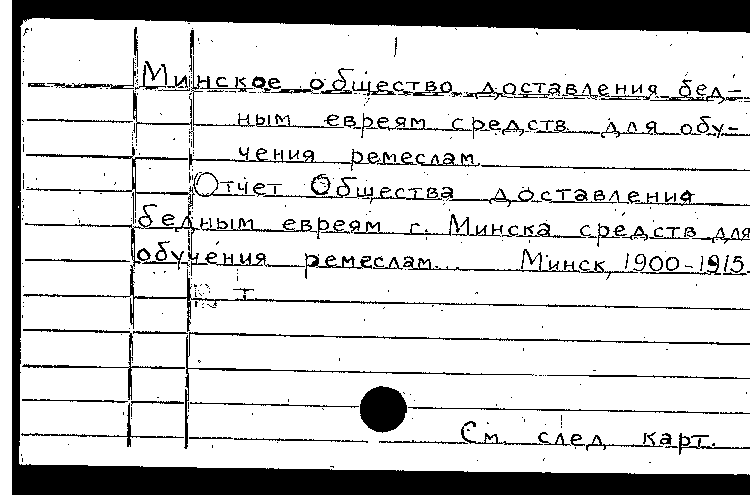 Минское общество доставления бед-
ным евреям средств для обу-
чения ремеслам.
Отчет Общества доставления
бедным евреям г. Минска средств для
обучения ремеслам... Минск, 1900-1915.
т.
См. след. карт.